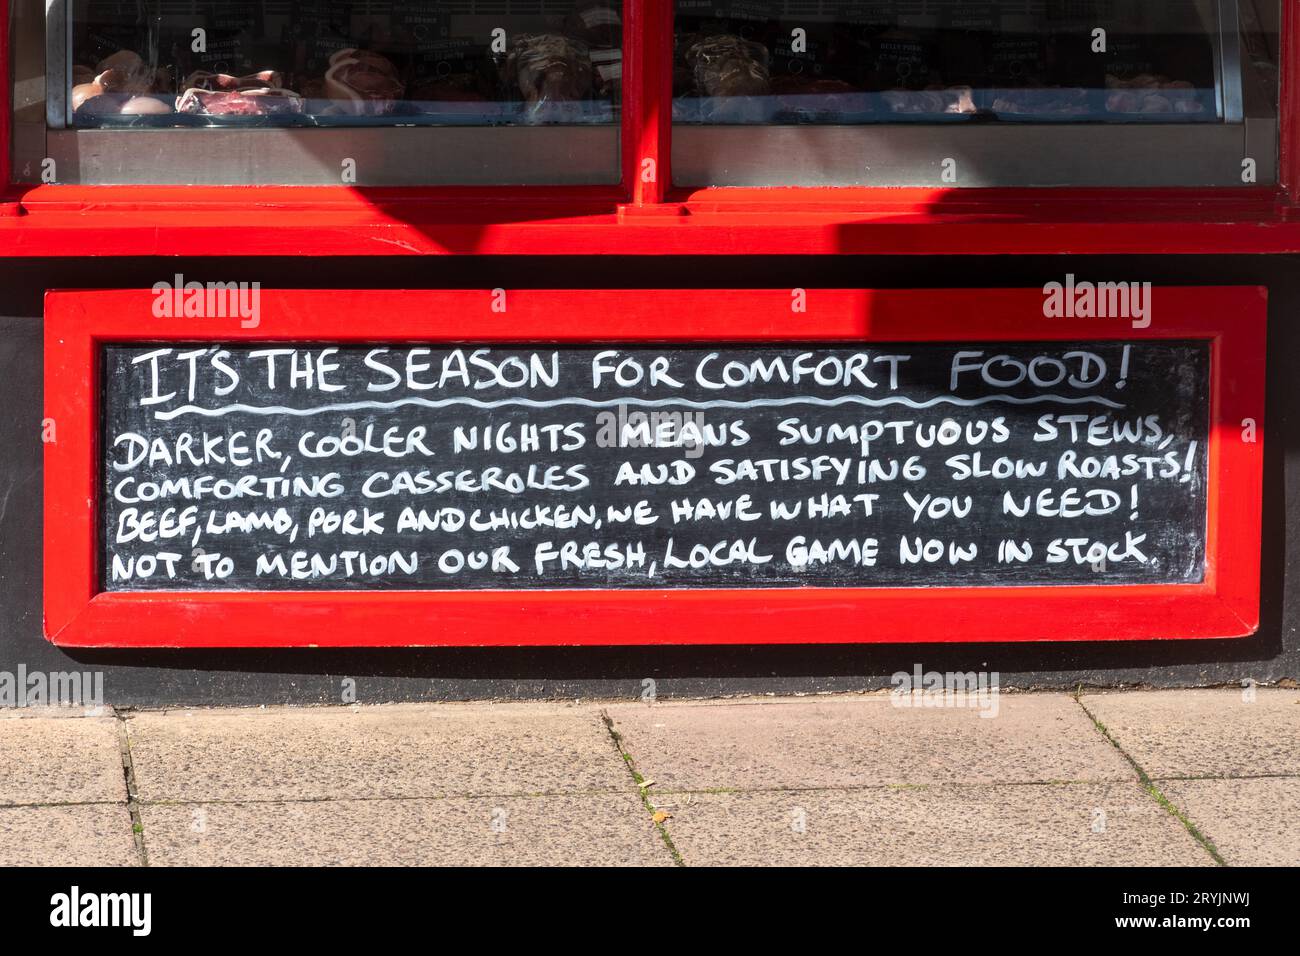 PORK
BELLY PORK
IT'S THE SEASON FOR COMFORT FOOD!
DARKER, COOLER NIGHTS MEANS SUMPTUOUS STEWS,
COMFORTING CASSEROLES AND SATISFYING SLOW ROASTS!
BEEF, LAMB, PORK AND CHICKEN, WE HAVE WHAT YOU NEED!
NOT TO MENTION OUR FRESH, LOCAL GAME NOW IN STOCK.
alamy
Image ID: 2RYJNWJ
www.alamy.com